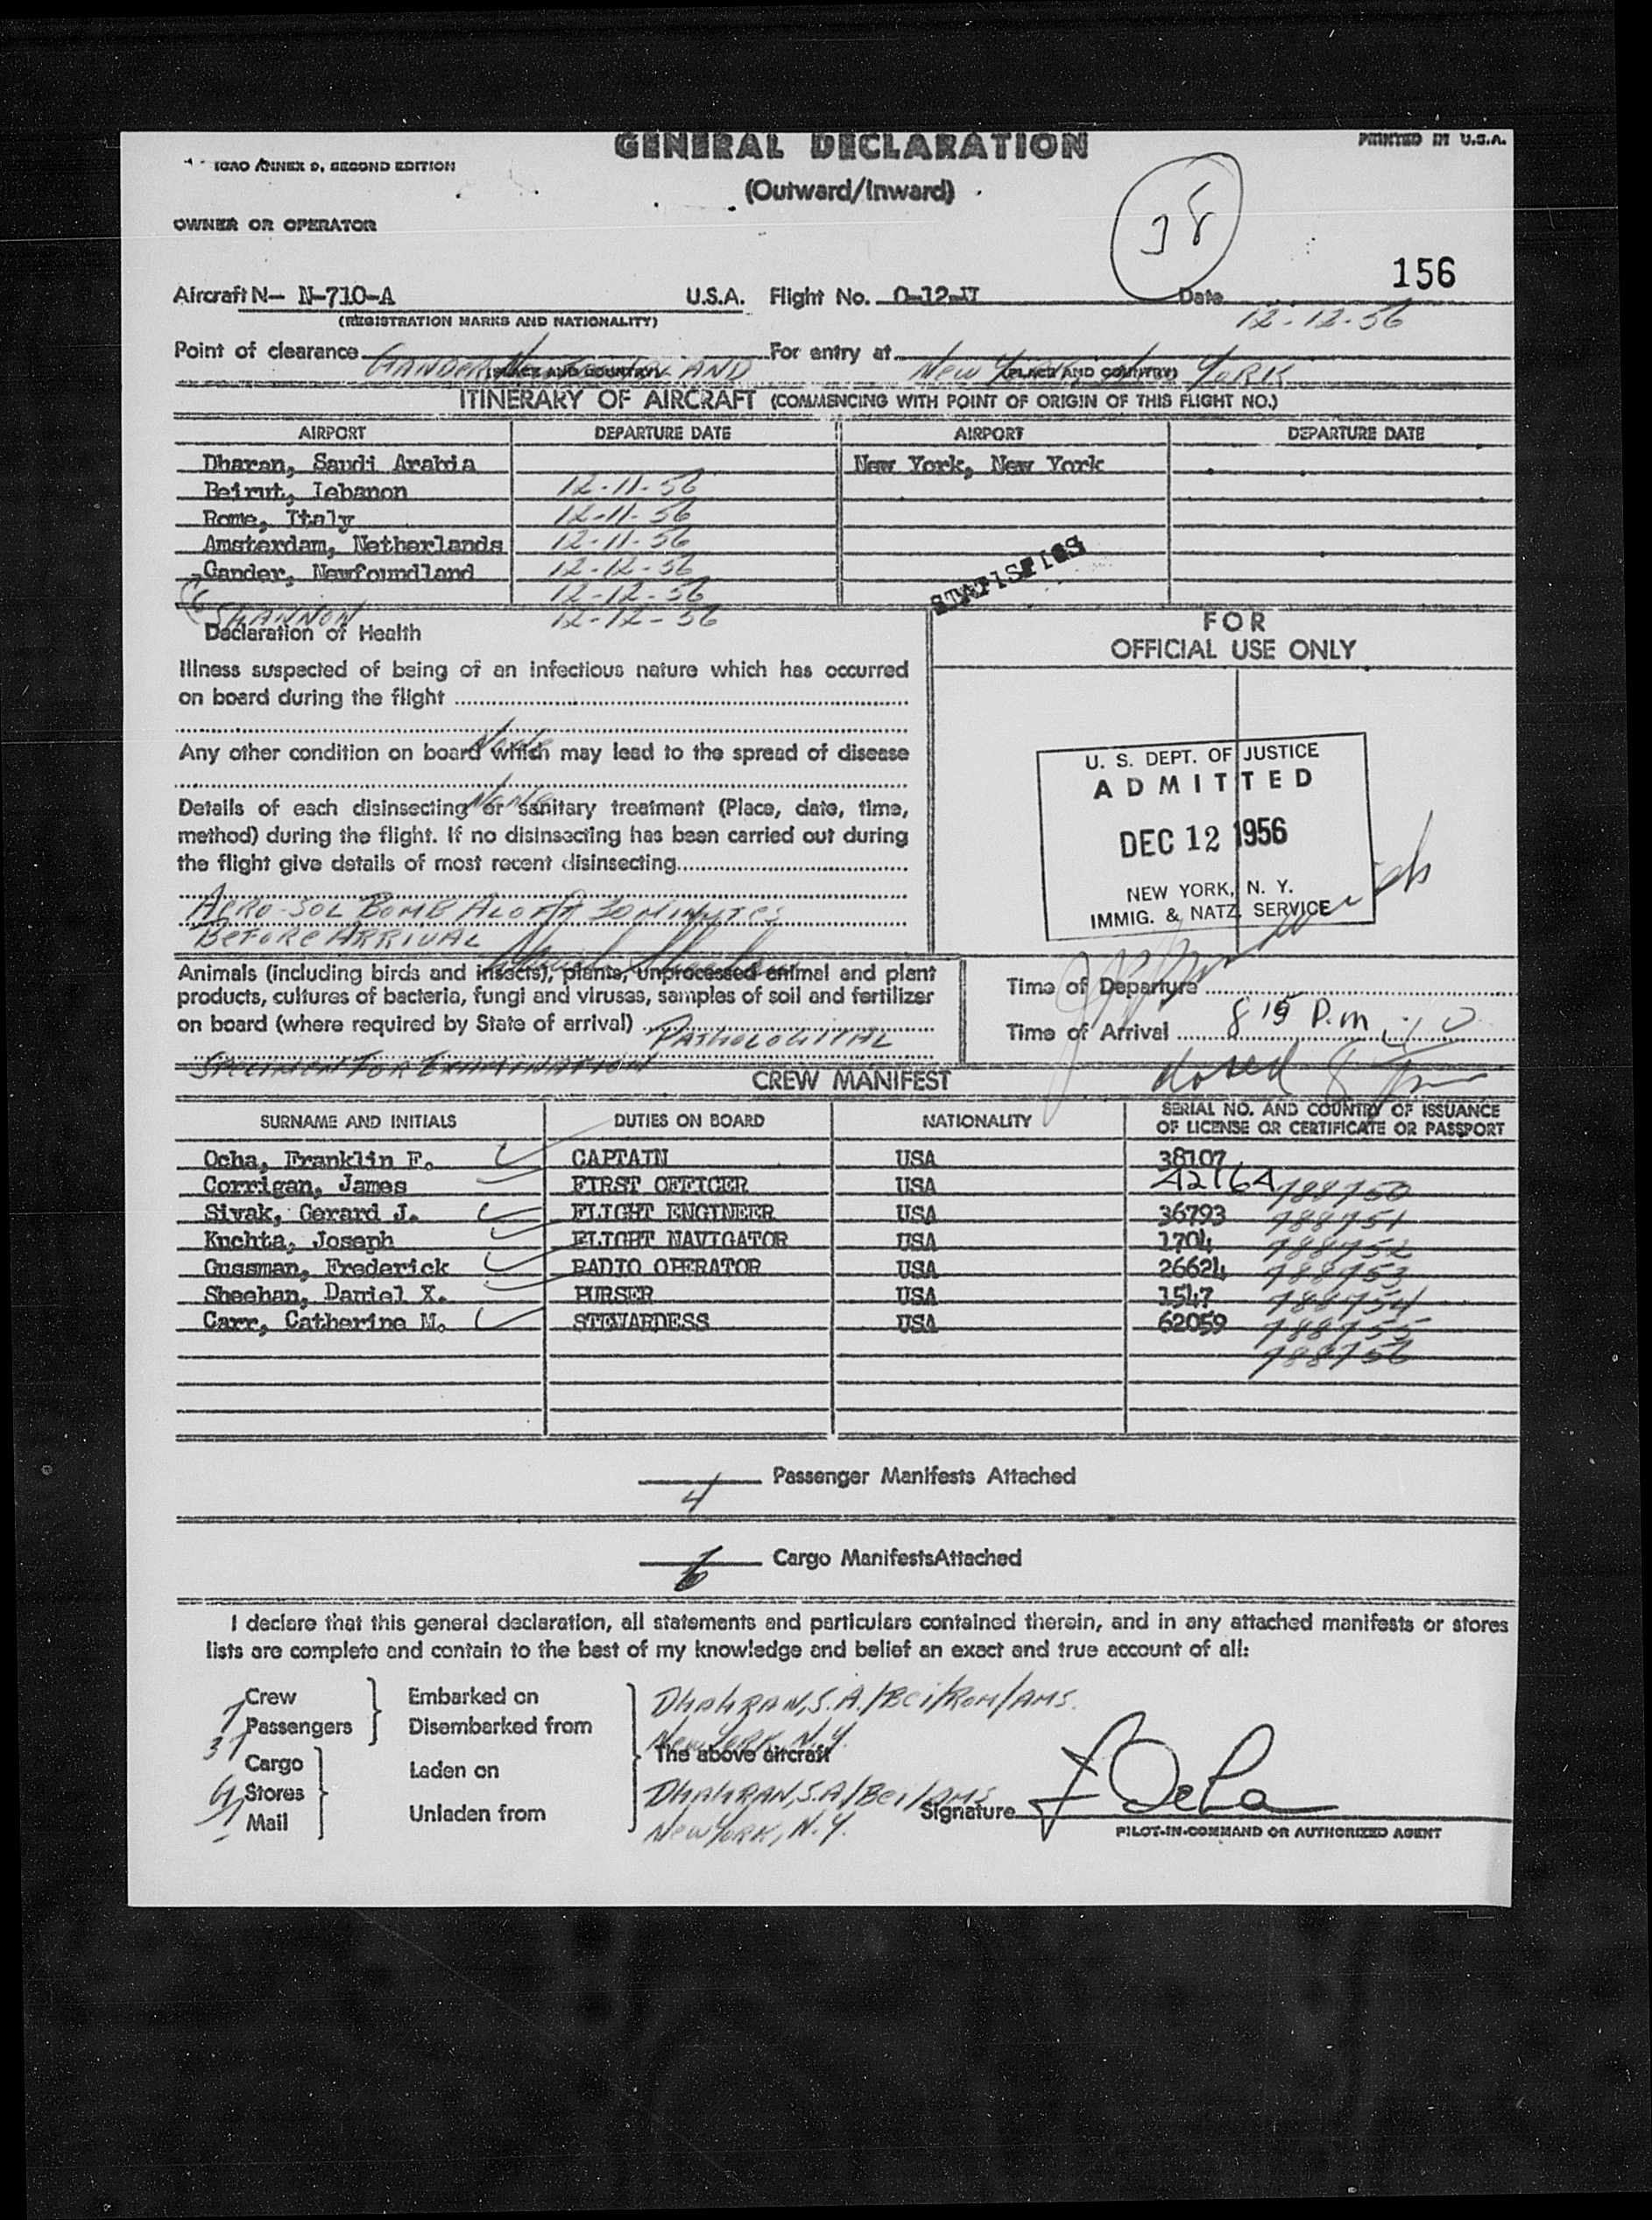 GENERAL DECLARATION
PRINTED IN U.S.A.
ICAO ANNEX 9, SECOND EDITION
(Outward/Inward)
OWNER OR OPERATOR
38
156
Aircraft N- N-710-A U.S.A. Flight No. Date
(REGISTRATION MARKS AND NATIONALITY)
12-12-56
Point of clearance For entry at
GANDER NEWFOUNDLAND NEW YORK, NEW YORK
(PLACE AND COUNTRY) (PLACE AND COUNTRY)
ITINERARY OF AIRCRAFT (COMMENCING WITH POINT OF ORIGIN OF THIS FLIGHT NO.)
AIRPORT DEPARTURE DATE AIRPORT DEPARTURE DATE
Dharan, Saudi Arabia New York, New York
Beirut, Lebanon 12-11-56
Rome, Italy 12-11-56
Amsterdam, Netherlands 12-11-56
Gander, Newfoundland 12-12-56
12-12-56
SHANNON 12-12-56
STATISTICS
Declaration of Health
Illness suspected of being of an infectious nature which has occurred
on board during the flight
None
Any other condition on board which may lead to the spread of disease
None
Details of each disinsecting or sanitary treatment (Place, date, time,
method) during the flight. If no disinsecting has been carried out during
the flight give details of most recent disinsecting
AERO-SOL BOMB ALOFT 30 MINUTES
BEFORE ARRIVAL
FOR
OFFICIAL USE ONLY
U. S. DEPT. OF JUSTICE
ADMITTED
DEC 12 1956
NEW YORK, N. Y.
IMMIG. & NATZ. SERVICE
Animals (including birds and insects), plants, unprocessed animal and plant
products, cultures of bacteria, fungi and viruses, samples of soil and fertilizer
on board (where required by State of arrival)
PATHOLOGICAL
SPECIMEN FOR EXAMINATION
Time of Departure
Time of Arrival 8 15 P.m
closed
CREW MANIFEST
SURNAME AND INITIALS DUTIES ON BOARD NATIONALITY SERIAL NO. AND COUNTRY OF ISSUANCE
OF LICENSE OR CERTIFICATE OR PASSPORT
Ocha, Franklin F. CAPTAIN USA 38107
Corrigan, James FIRST OFFICER USA 42164 788750
Sivak, Gerard J. FLIGHT ENGINEER USA 36793 788751
Kuchta, Joseph FLIGHT NAVIGATOR USA 1704 788752
Gussman, Frederick RADIO OPERATOR USA 26624 788753
Sheehan, Daniel X. PURSER USA 1547 788754
Carr, Catherine M. STEWARDESS USA 62059 788755
788756
4 Passenger Manifests Attached
6 Cargo ManifestsAttached
I declare that this general declaration, all statements and particulars contained therein, and in any attached manifests or stores
lists are complete and contain to the best of my knowledge and belief an exact and true account of all:
7 Crew
37 Passengers
Embarked on
Disembarked from
DHAHRAN, S.A./BEI/ROM/AMS.
NEW YORK, N.Y.
The above aircraft
Cargo
Stores
Mail
Laden on
Unladen from
DHAHRAN, S.A/BEI/AMS
NEW YORK, N.Y.
Signature
PILOT-IN-COMMAND OR AUTHORIZED AGENT